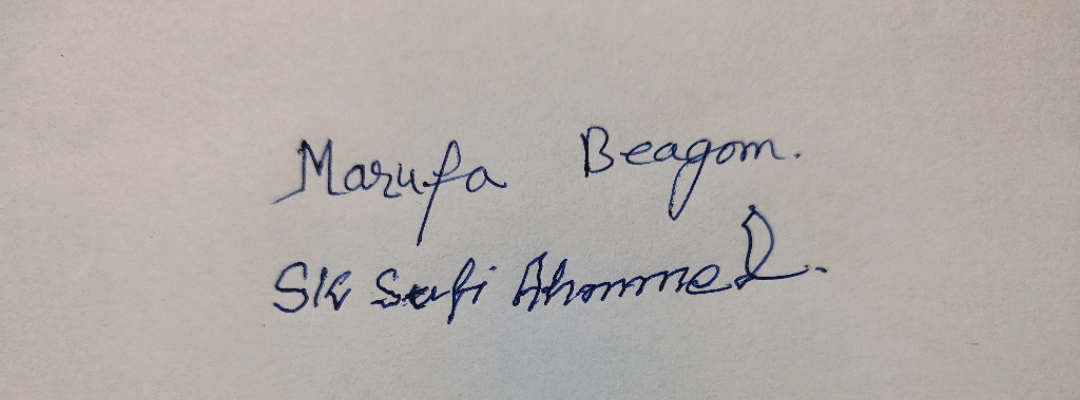 Marufa Beagom.
SK Safi Ahmmed.